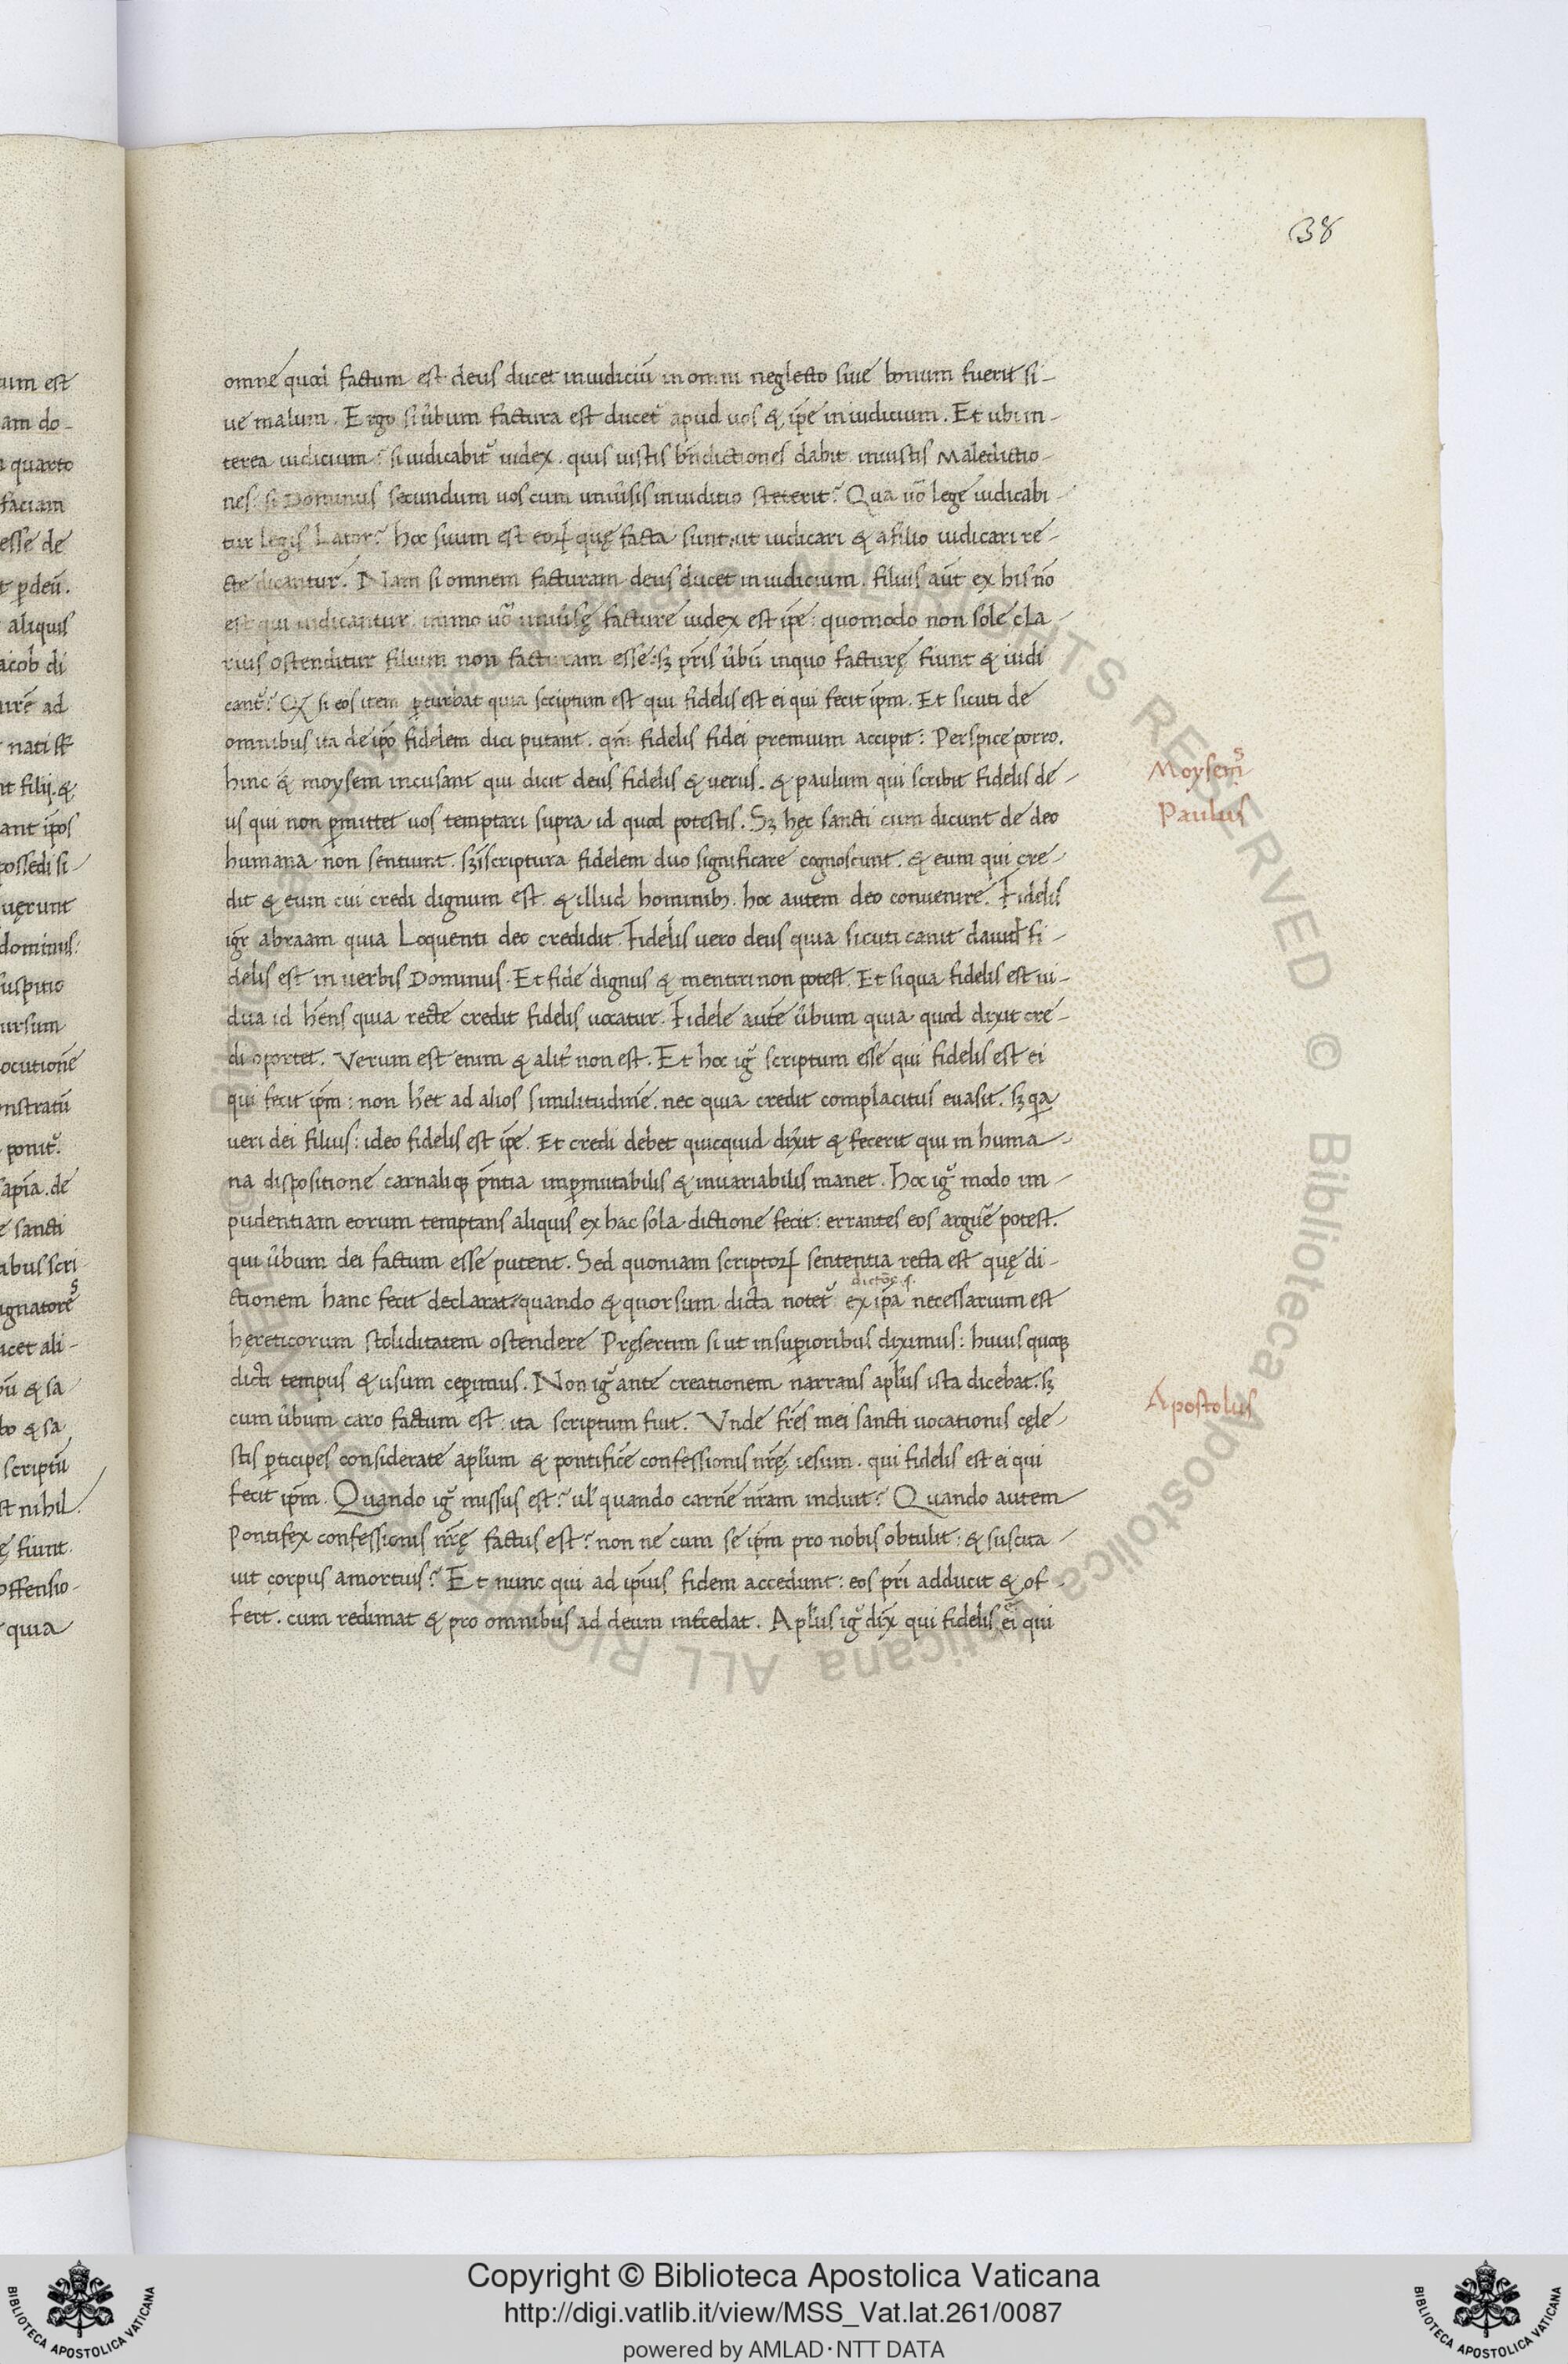 38
omne quod factum est deus ducet in iudiciũ in omni neglecto siue bonum fuerit si-
ue malum. Ergo si ũbum factura est ducet᷑ apud uos & ip̃e in iudicium. Et ubi in-
terea iudicium? si iudicabit᷑ iudex. quis iustis bñdictiones dabit iniustis Maledictio-
nes: si Dominus secundum uos cum uniũsis in iuditio steterit? Qua ũo lege iudicabi-
tur legis Lator? hoc suum est eoꝝ quę facta sunt: ut iudicari & a filio iudicari re-
cte dicantur. Nam si omnem facturam deus ducet in iudicium. filius aũt ex his nõ
est qui iudicantur immo ũo uniũsę facture iudex est ip̃e: quomodo non sole cla-
rius ostenditur filium non facturam esse: sꝫ pr̃is ũbũ in quo facturę fiunt & iudi
cant᷑? Qđ si eos item ꝑturbat quia scriptum est qui fidelis est ei qui fecit ip̃m. Et sicuti de
omnibus ita de ip̃o fidelem dici putant. qm̃ fidelis fidei premium accipit: Perspice porro.
hinc & moysem incusant qui dicit deus fidelis & uerus. & paulum qui scribit fidelis de-
us qui non ꝑmittet uos temptari supra id quod potestis. Sꝫ hęc sancti cum dicunt de deo
humana non sentiunt. sꝫ i scriptura fidelem duo significare cognoscunt. & eum qui cre-
dit & eum cui credi dignum est. & illud hominibꝫ. hoc autem deo conuenire. Fidelis
igr̃ abraam quia Loquenti deo credidit. Fidelis uero deus quia sicuti canit dauid fi-
delis est in uerbis Dominus. Et fide dignus & mentiri non potest. Et si qua fidelis est ui-
dua id hẽns quia recte credit fidelis uocatur. Fidele aute ũbum quia quod dixit cre-
di oportet. Verum est enim & alit̃ non est. Et hoc ig᷑ scriptum esse qui fidelis est ei
qui fecit ip̃m: non h̃et ad alios similitudinẽ. nec quia credit complacitus euasit. sꝫ qa
ueri dei filius: ideo fidelis est ip̃e. Et credi debet quicquid dixit & fecerit qui in huma-
na dispositione carnaliqꝫ p̃ntia imꝑmutabilis & inuariabilis manet. Hoc ig᷑ modo im-
pudentiam eorum temptans aliquis ex hac sola dictione fecit: errantes eos arguẽ potest.
qui ũbum dei factum esse putent. Sed quoniam scriptoꝝ sententia recta est quę di-
ctionem hanc fecit declarat: quando & quorsum dicta notet᷑ ex ip̃a necessarium est
hęreticorum stoliditatem ostendere Pręsertim si ut in suꝑioribus diximus: huius quoqꝫ
dicti tempus & usum ceꝑimus. Non ig᷑ ante creationem narrans apl̃us ista dicebat. sꝫ
cum ũbum caro factum est. ita scriptum fuit. Vnde fr̃es mei sancti uocationis cęle-
stis ꝑticipes considerate apl̃um & pontificẽ confessionis nr̃ę iesum. qui fidelis est ei qui
fecit ip̃m. Quando ig᷑ missus est? ul̃ quando carnẽ nr̃am induit? Quando autem
Pontifex confessionis nr̃ę factus est? non ne cum se ip̃m pro nobis obtulit: & suscita-
uit corpus a mortuis? Et nunc qui ad ip̃ius fidem accedunt: eos pr̃i adducit & of-
fert. cum redimat & pro omnibus ad deum int̃cedat. Apl̃us ig᷑ dix̃ qui fidelis ẽ ei qui
Moysem s̃
Paulus
Apostolus
Copyright © Biblioteca Apostolica Vaticana
http://digi.vatlib.it/view/MSS_Vat.lat.261/0087
powered by AMLAD·NTT DATA